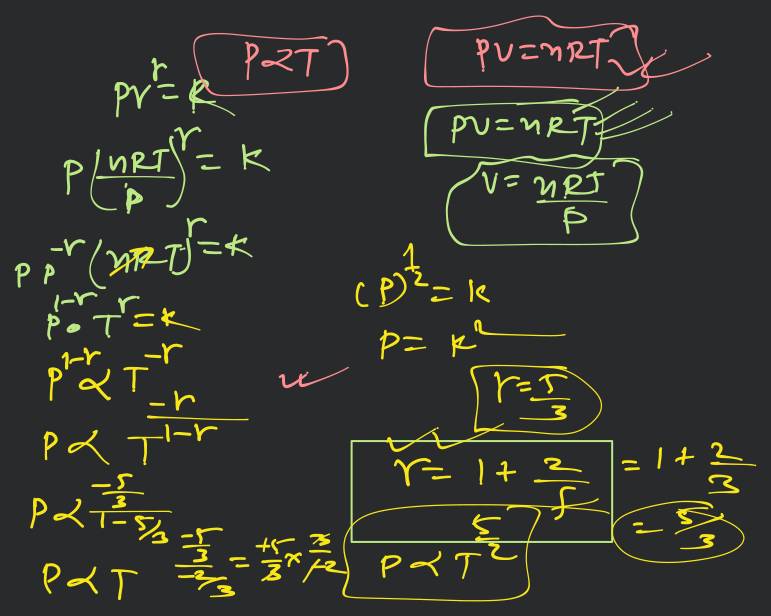 P∝T
PV=nRT
PV^r=k
PV=nRT
P(nRT/P)^r=k
V=nRT/P
P P^-r (nRT)^r=k
(P)^1/2=k
P^1-r • T^r=k
P=k^2
P^1-r ∝ T^-r
r=5/3
P∝T^-r/1-r
r=1+2/f =1+2/3
P∝ -5/3/1-5/3
=5/3
P∝T -5/3/-2/3 = +5/3 × 3/+2
P∝T^5/2